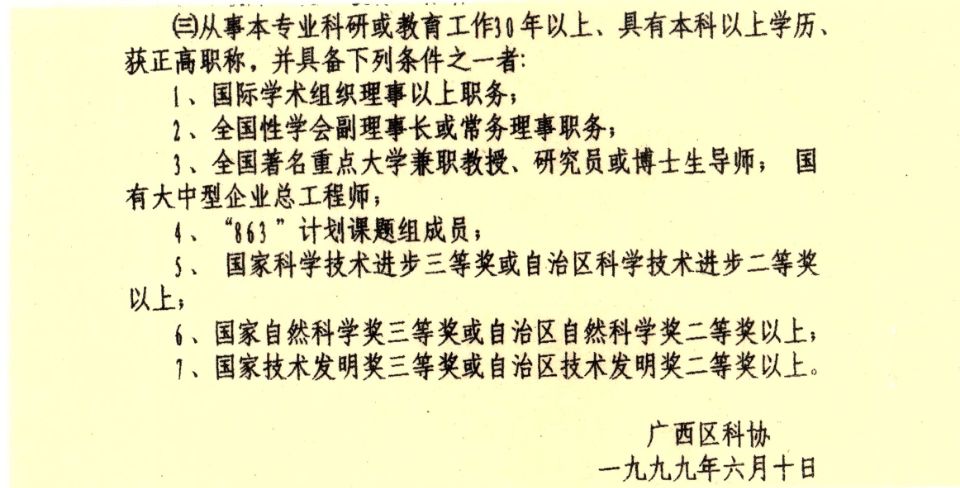 ㈢从事本专业科研或教育工作30年以上、具有本科以上学历、
获正高职称，并具备下列条件之一者：
1、国际学术组织理事以上职务；
2、全国性学会副理事长或常务理事职务；
3、全国著名重点大学兼职教授、研究员或博士生导师； 国
有大中型企业总工程师；
4、“863”计划课题组成员；
5、 国家科学技术进步三等奖或自治区科学技术进步二等奖
以上；
6、国家自然科学奖三等奖或自治区自然科学奖二等奖以上；
7、国家技术发明奖三等奖或自治区技术发明奖二等奖以上。
广西区科协
一九九九年六月十日